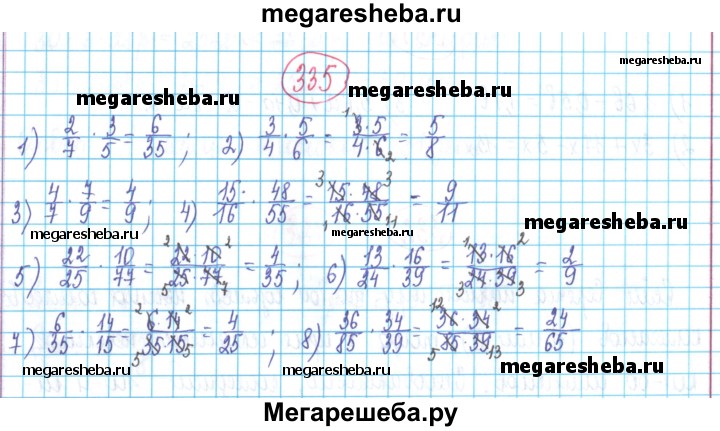 megaresheba.ru
335
megaresheba.ru
megaresheba.ru megaresheba.ru
1) 2/7 · 3/5 = 6/35 ; 2) 3/4 · 5/6 = 3·5/4·6 = 5/8
3) 4/7 · 7/9 = 4/9 ; 4) 15/16 · 48/55 = 15·48/16·55 = 9/11
megaresheba.ru megaresheba.ru megaresheba.ru
5) 22/25 · 10/77 = 22·10/25·77 = 4/35 ; 6) 13/24 · 16/39 = 13·16/24·39 = 2/9
7) 6/35 · 14/15 = 6·14/35·15 = 4/25 ; 8) 36/85 · 34/39 = 36·34/85·39 = 24/65
megaresheba.ru megaresheba.ru
Мегарешеба.ру